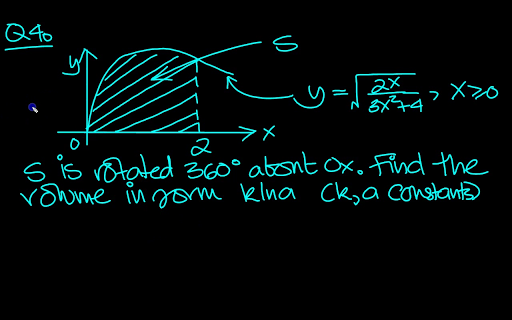 Q4o
S
y
y = √(2x/(3x²+4)), x≥0
0 2 x
S is rotated 360° about Ox. Find the
volume in form klna (k,a constants)